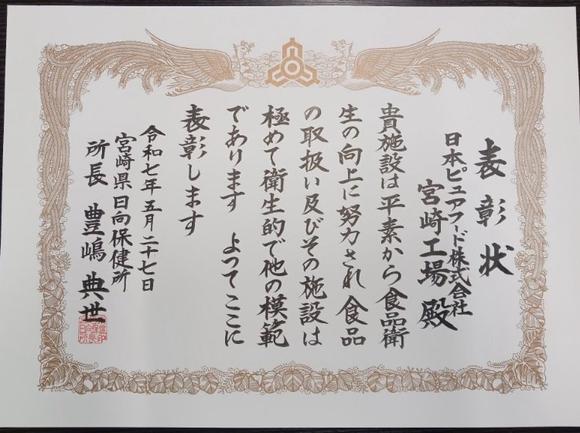 表彰状
日本ピュアフード株式会社
宮崎工場殿
貴施設は平素から食品衛
生の向上に努力され食品
の取扱い及びその施設は
極めて衛生的で他の模範
であります よってここに
表彰します
令和七年五月二十七日
宮崎県日向保健所
所長 豊嶋典世